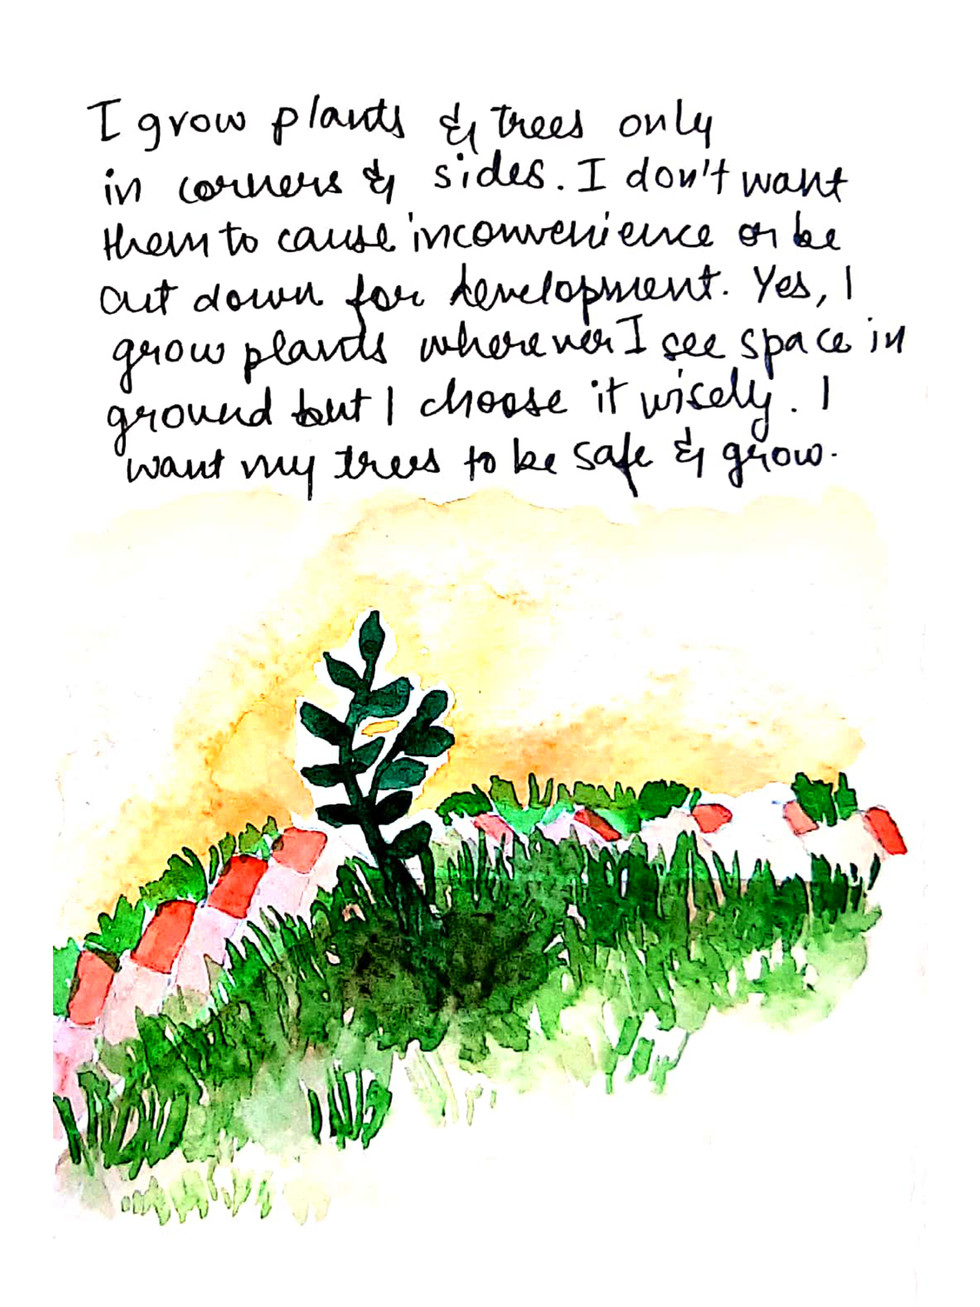 I grow plants & trees only
in corners & sides. I don't want
them to cause inconvenience or be
cut down for development. Yes, I
grow plants wherever I see space in
ground but I choose it wisely. I
want my trees to be safe & grow.